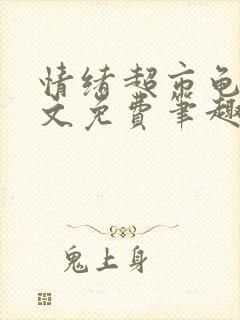 情绪超市龟
文免费笔趣
鬼上身